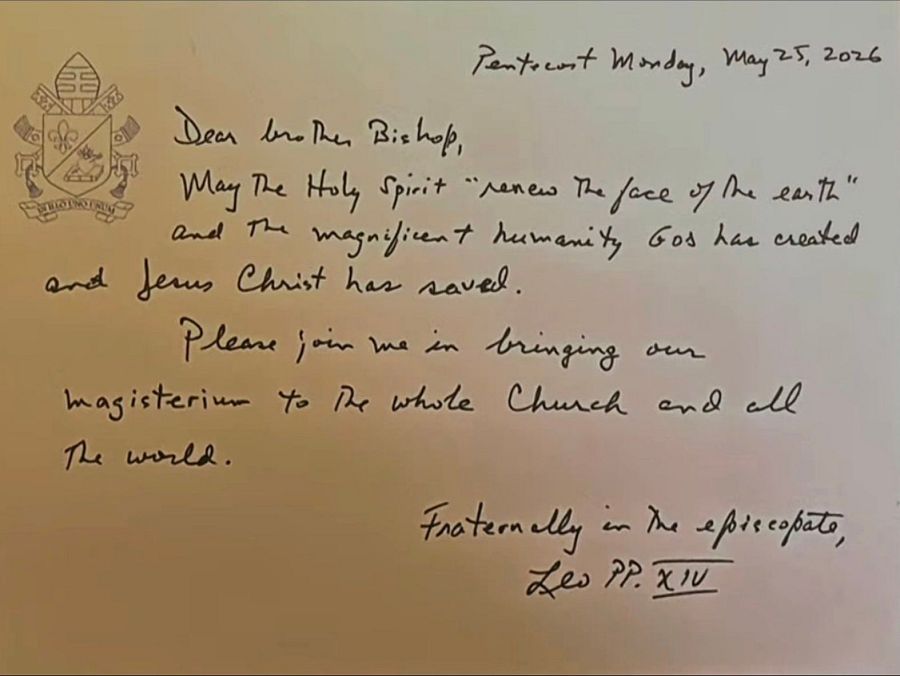 Pentecost Monday, May 25, 2026
Dear brother Bishop,
May the Holy Spirit "renew the face of the earth"
and the magnificent humanity God has created
and Jesus Christ has saved.
Please join me in bringing our
magisterium to the whole Church and all
the world.
Fraternally in the episcopate,
Leo PP. XIV
IN ILLO UNO UNUM